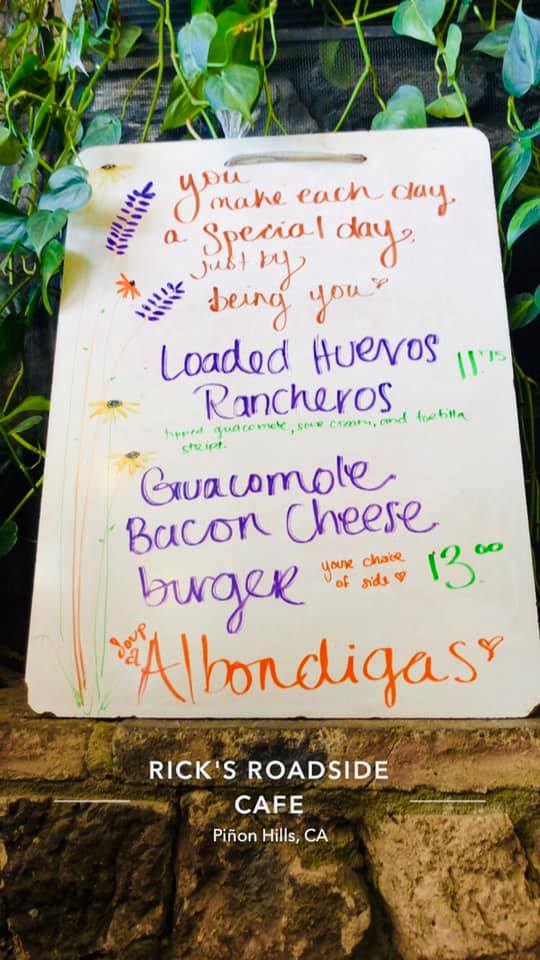 you
make each day
a Special day,
just by
being you
Loaded Huevos 11.75
Rancheros
topped guacamole, sour cream, and tortilla
strips.
Guacomole
Bacon Cheese
burger your choice of side 13.00
Soup
Albondigas
RICK'S ROADSIDE
CAFE
Piñon Hills, CA